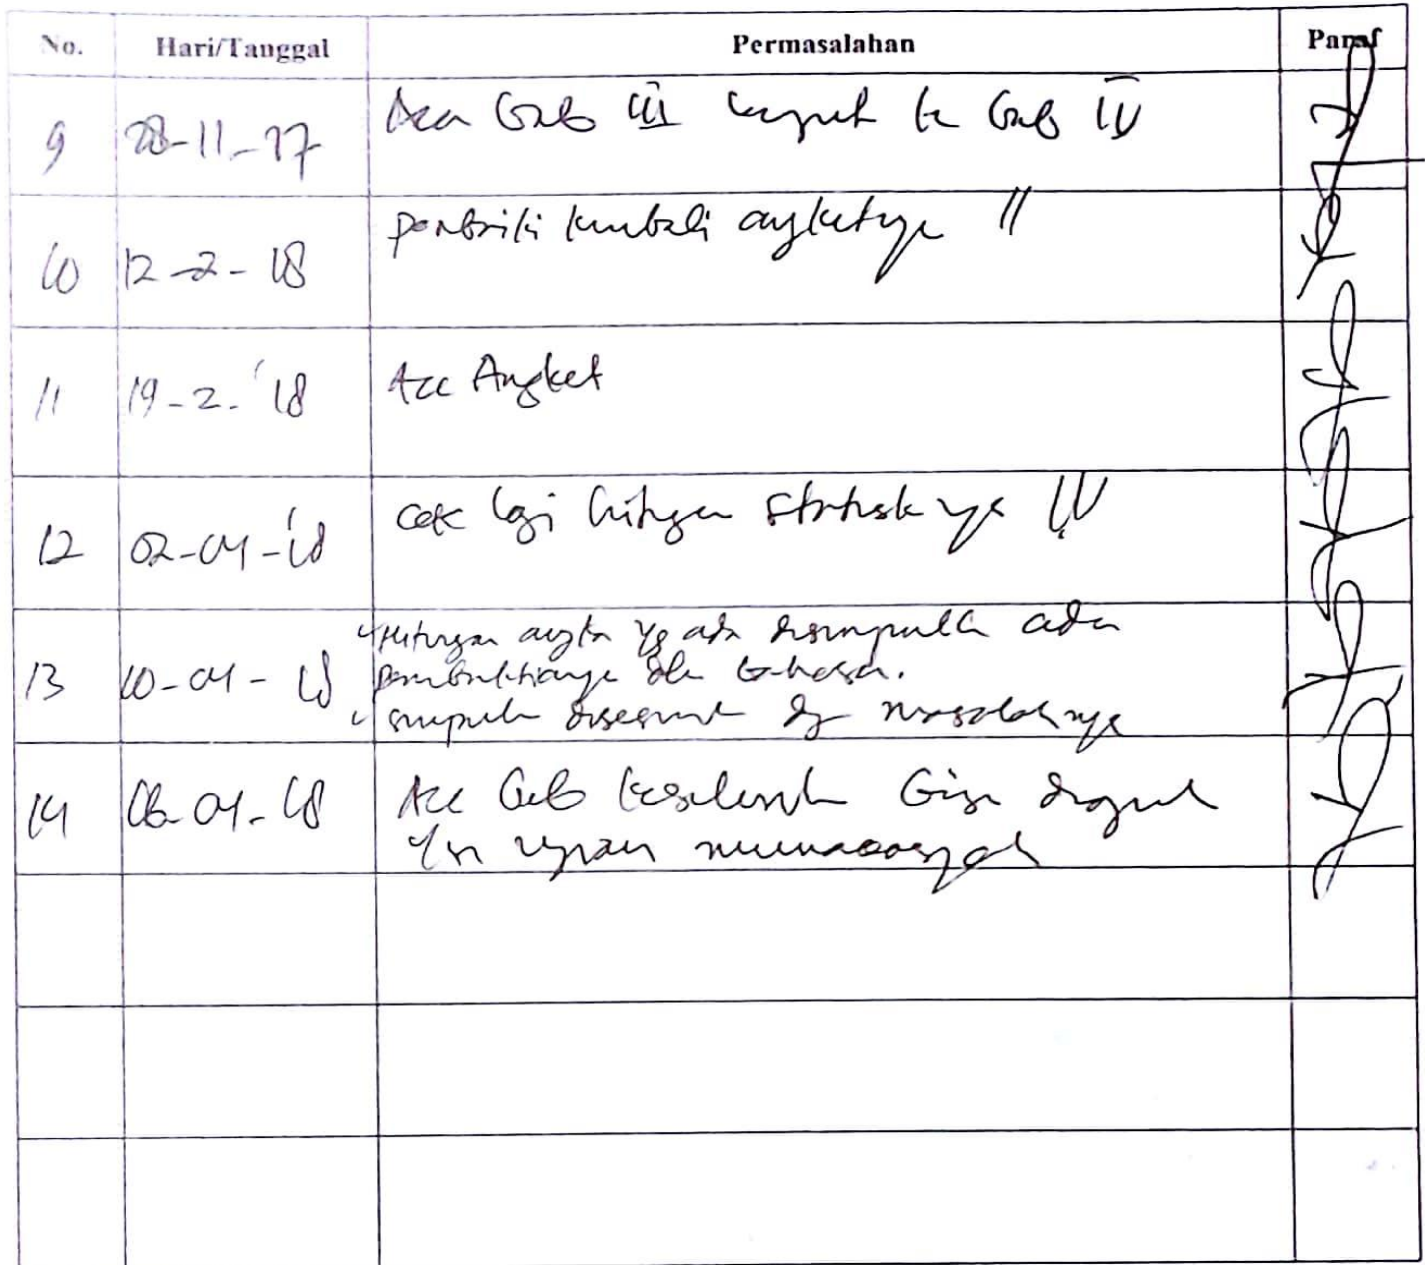 No. Hari/Tanggal Permasalahan Paraf
9 28-11-17 Acc Bab III lanjut ke Bab IV
10 12-2-18 perbaiki kembali angketnya //
11 19-2-'18 Acc Angket
12 02-04-'18 cek lagi hitungan statistiknya IV
13 10-04-18 Hitungan angka yg ada disimpulkan ada
pembuktiannya dlm bahasa.
simpulan dg masalahnya
14 04-18 Acc Bab keseluruhan Bisa
ujian munaqosyah